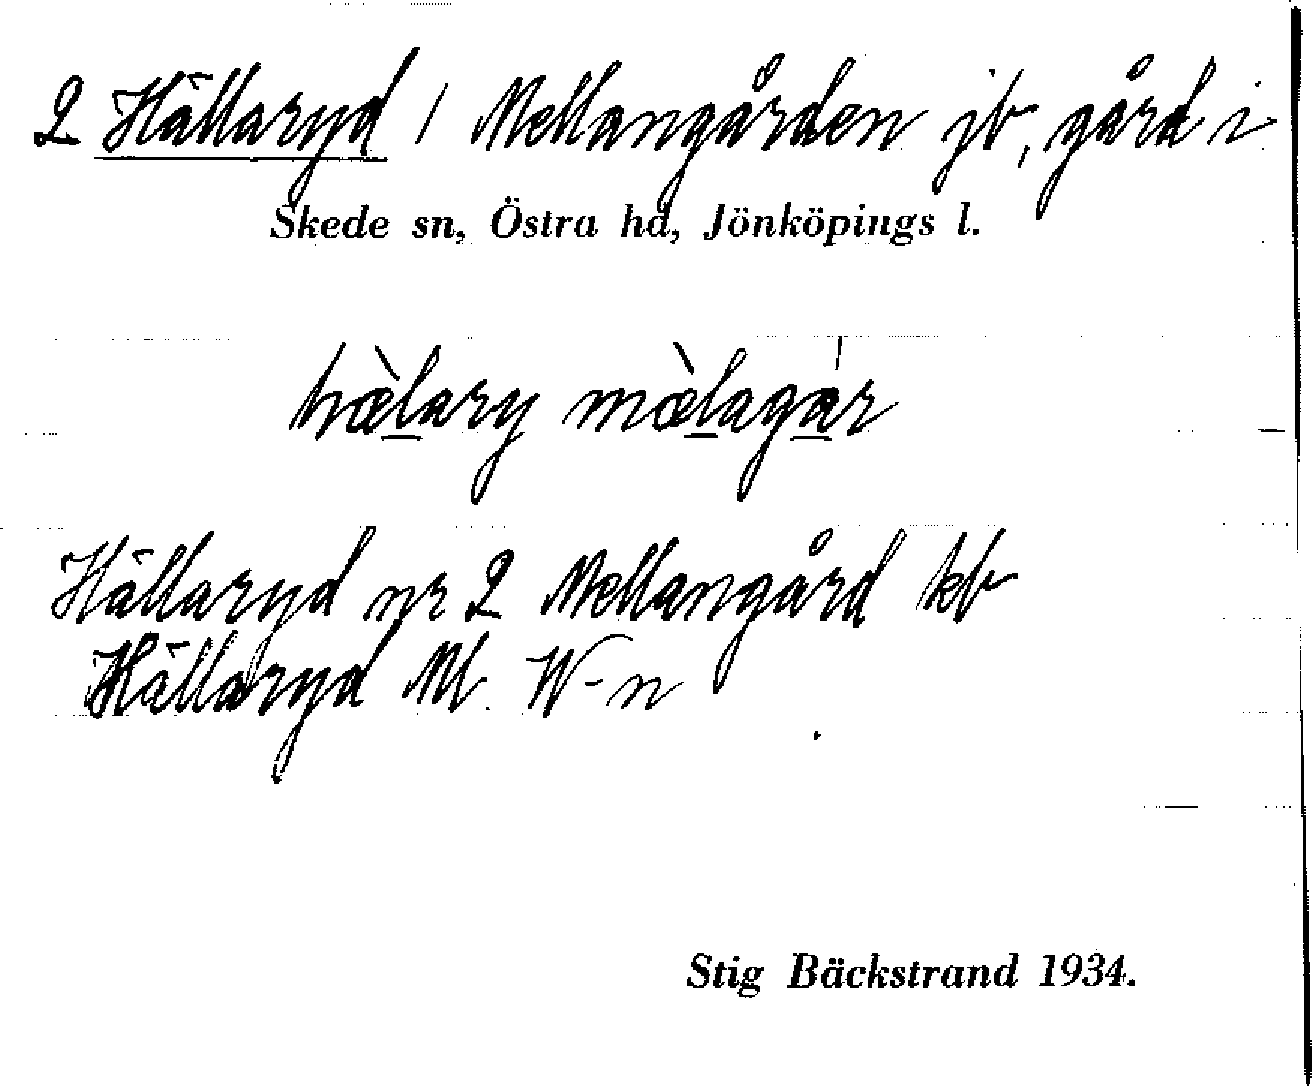 2 Hällaryd / Mellangården jb, gård i
Skede sn, Östra hd, Jönköpings l.
hæ̀lary mæ̀lagár
Hällaryd nr 2 Mellangård kb
Hällaryd M. W-n
Stig Bäckstrand 1934.